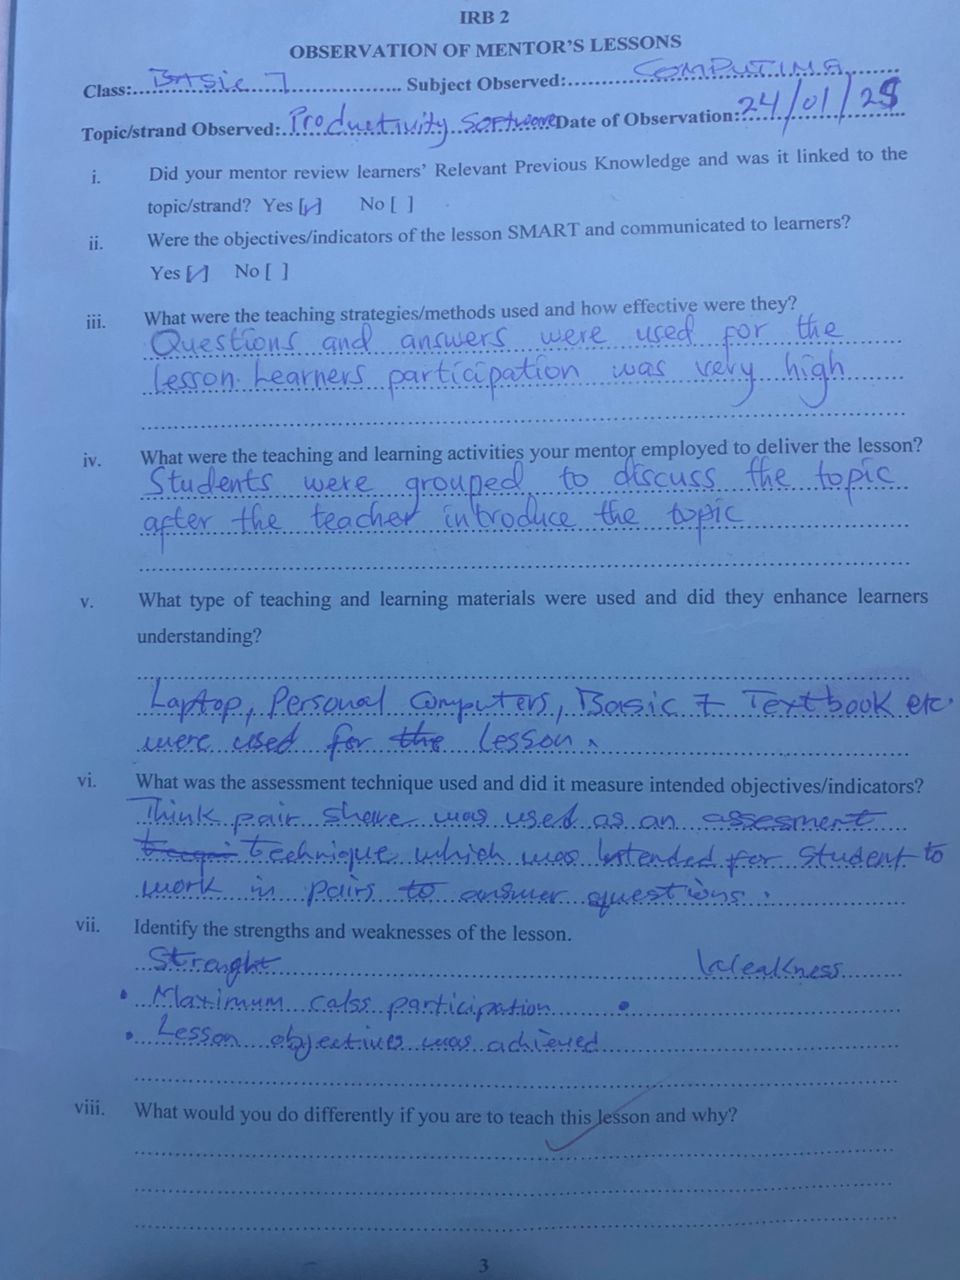 IRB 2
OBSERVATION OF MENTOR'S LESSONS
Class:..BASIC 7.. Subject Observed:..COMPUTING..
Topic/strand Observed:..Productivity Software Date of Observation:..24/01/25..
i. Did your mentor review learners' Relevant Previous Knowledge and was it linked to the
topic/strand? Yes [✓] No [ ]
ii. Were the objectives/indicators of the lesson SMART and communicated to learners?
Yes [✓] No [ ]
iii. What were the teaching strategies/methods used and how effective were they?
Questions and answers were used for the
lesson. Learners participation was very high
iv. What were the teaching and learning activities your mentor employed to deliver the lesson?
Students were grouped to discuss the topic
after the teacher introduce the topic
v. What type of teaching and learning materials were used and did they enhance learners
understanding?
Laptop, Personal Computers, Basic 7 Textbook etc.
were used for the lesson.
vi. What was the assessment technique used and did it measure intended objectives/indicators?
Think pair share was used as an assesment
technique which was intended for student to
work in pairs to answer questions.
vii. Identify the strengths and weaknesses of the lesson.
Straught Weakness
• Maximum calss participation •
• Lesson objectives was achieved
viii. What would you do differently if you are to teach this lesson and why?
3